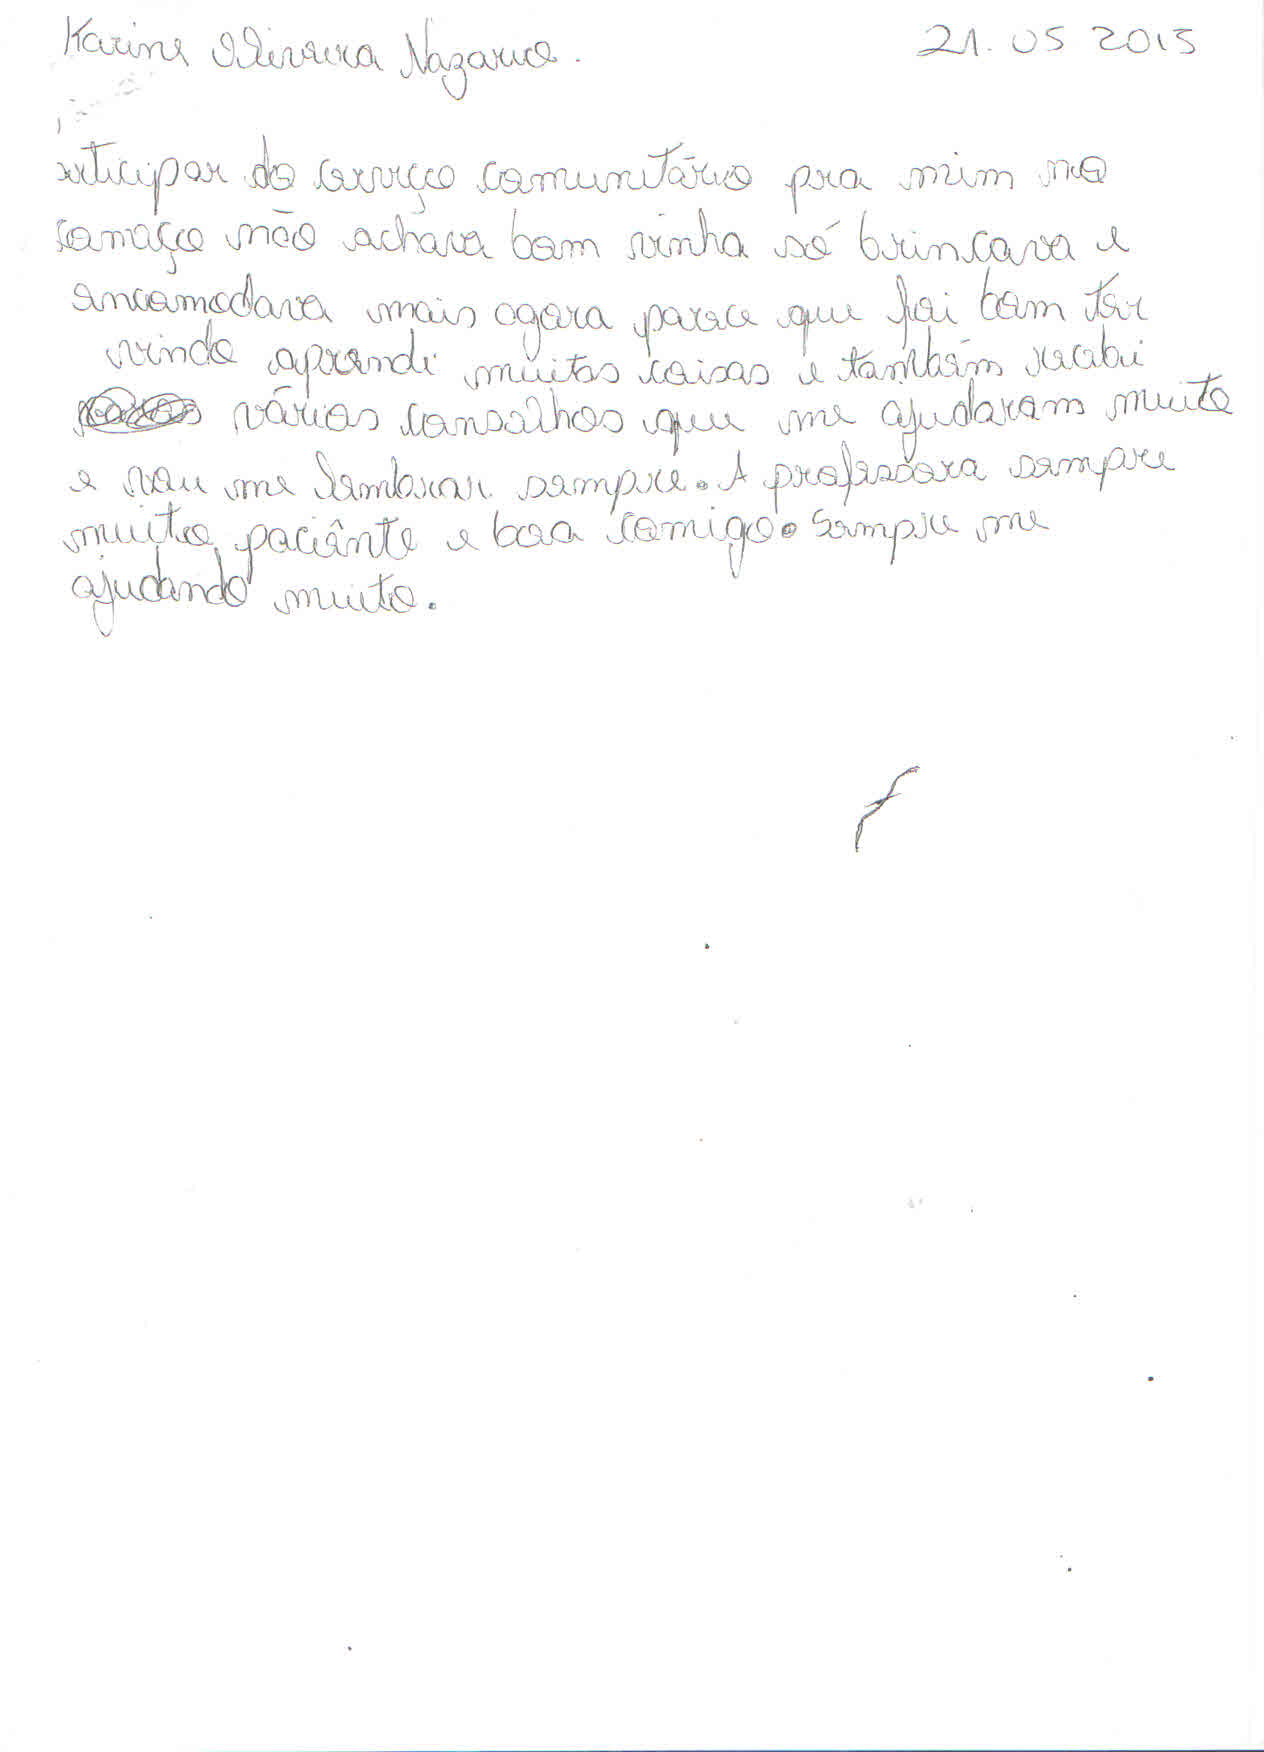 Karine Oliveira Nazario. 21.05 2015
articipar do serviço comunitário pra mim no
começo não achava bom vinha só brincava e
encomodava mais agora parece que foi bom ter
vindo aprendi muitas coisas e também recebi
várias conselhos que me ajudaram muito
e vou me lembrar sempre. A professora sempre
muito paciênte e boa comigo. Sempre me
ajudando muito.